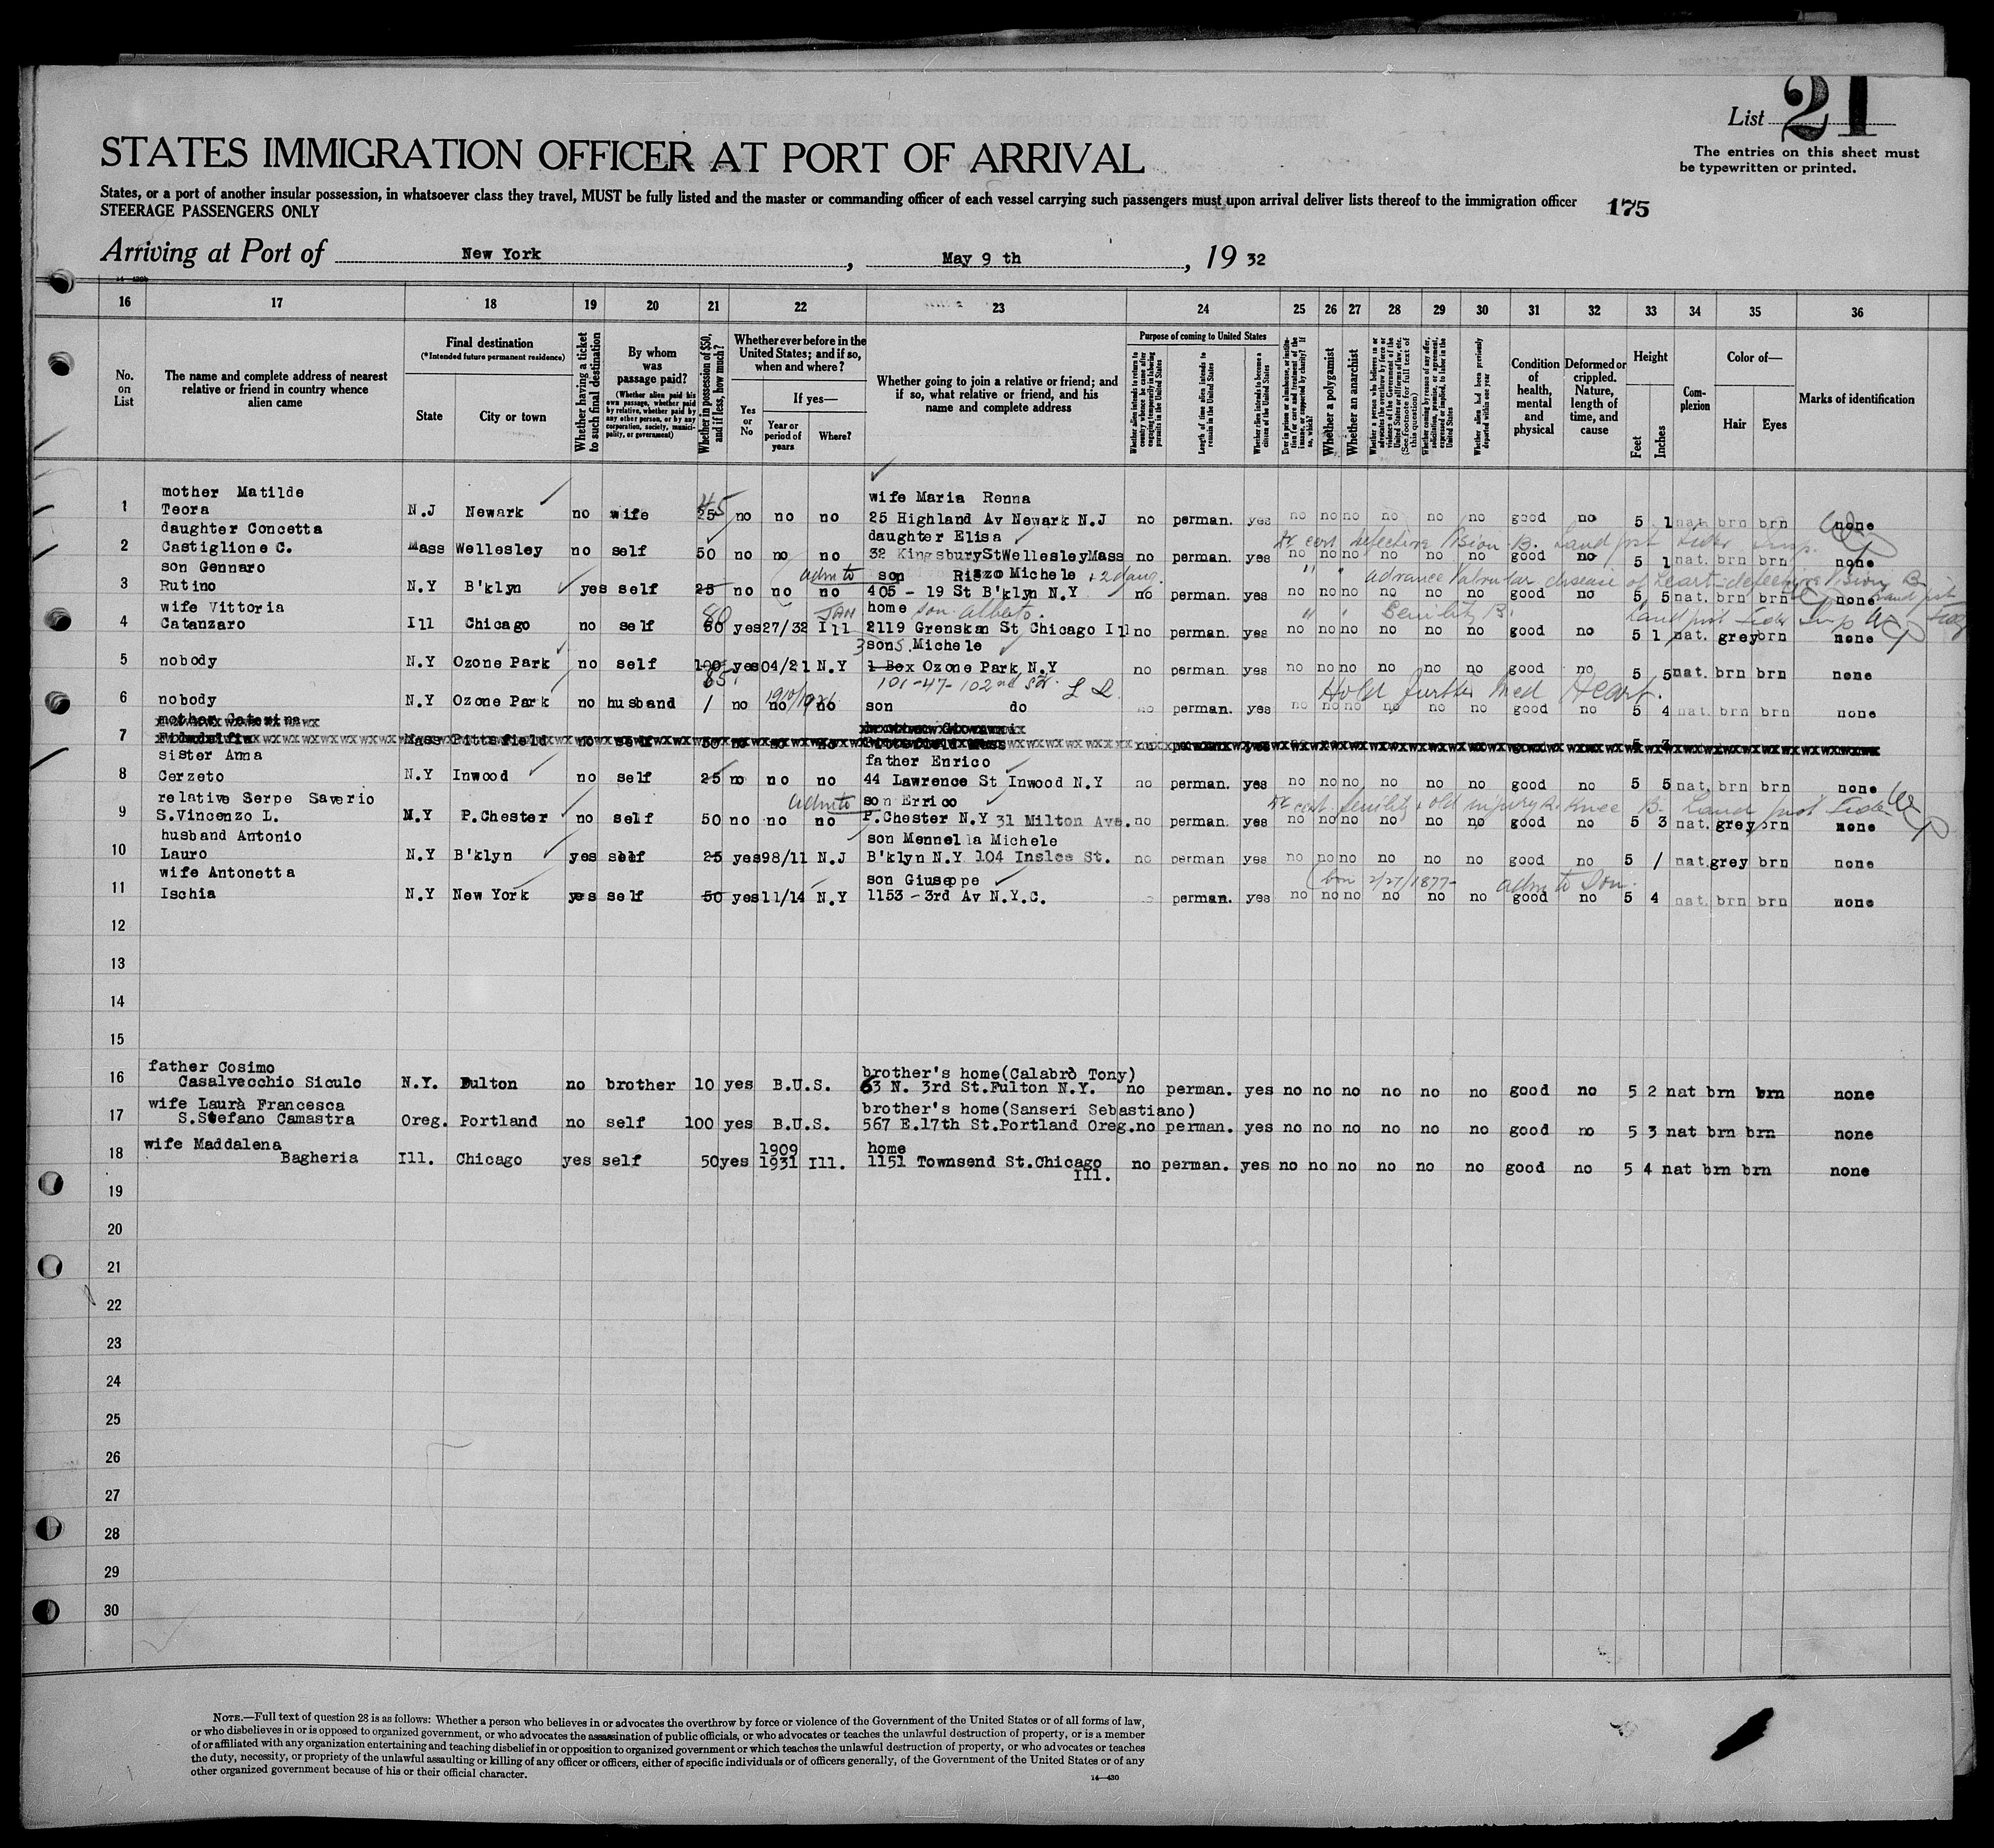 List 21
The entries on this sheet must
be typewritten or printed.
STATES IMMIGRATION OFFICER AT PORT OF ARRIVAL
States, or a port of another insular possession, in whatsoever class they travel, MUST be fully listed and the master or commanding officer of each vessel carrying such passengers must upon arrival deliver lists thereof to the immigration officer
STEERAGE PASSENGERS ONLY
175
Arriving at Port of New York, May 9 th, 19 32
16 17 18 19 20 21 22 23 24 25 26 27 28 29 30 31 32 33 34 35 36
No. on List
The name and complete address of nearest relative or friend in country whence alien came
Final destination
(*Intended future permanent residence)
State
City or town
Whether having a ticket to such final destination
By whom was passage paid?
(Whether alien paid his own passage, whether paid by relative, whether paid by any other person, or by any corporation, society, municipality, or government)
Whether in possession of $50, and if less, how much?
Whether ever before in the United States; and if so, when and where?
Yes or No
If yes—
Year or period of years
Where?
Whether going to join a relative or friend; and if so, what relative or friend, and his name and complete address
Purpose of coming to United States
Length of time alien intends to remain in the United States
Whether alien intends to become a citizen of the United States
Whether a polygamist
Whether an anarchist
Condition of health, mental and physical
Deformed or crippled. Nature, length of time, and cause
Height
Feet
Inches
Complexion
Color of—
Hair
Eyes
Marks of identification
mother Matilde wife Maria Renna
1 Teora N.J Newark no wife 25 no no no 25 Highland Av Newark N.J no perman. yes no no no no no no good no 5 1 nat. brn brn none
daughter Concetta daughter Elisa
2 Castiglione C. Mass Wellesley no self 50 no no no 32 KingsburyStWellesleyMass no perman. yes no no no no no no good no 5 1 nat. brn brn none
son Gennaro son Rizzo Michele + 2 daug.
3 Rutino N.Y B'klyn yes self 25 no no no 405 - 19 St B'klyn N.Y no perman. yes no no no no no no good no 5 5 nat. brn brn none
wife Vittoria home son Alberto.
4 Catanzaro Ill Chicago no self 60 yes 27/32 Ill 2119 Grenskan St Chicago Ill no perman. yes no no no no no no good no 5 1 nat. grey brn none
3 sons Michele
5 nobody N.Y Ozone Park no self 100 yes 04/21 N.Y 1 Box Ozone Park N.Y no perman. yes no no no no no no good no 5 5 nat. brn brn none
101-47-102nd St. Hold further med Heart.
6 nobody N.Y Ozone Park no husband / no no no son do no perman. yes no no no no no no good no 5 4 nat. brn brn none
mother Caterina brother Giovanni
7 Filadelfia Mass Pittsfield no self 50 no no no Pittsfield Mass
sister Anna father Enrico
8 Cerzeto N.Y Inwood no self 25 no no no 44 Lawrence St Inwood N.Y no perman. yes no no no no no no good no 5 5 nat. brn brn none
relative Serpe Saverio son Errico
9 S.Vincenzo L. N.Y P.Chester no self 50 no no no P.Chester N.Y 31 Milton Ave. no perman. yes no no no no no no good no 5 3 nat. grey brn none
husband Antonio son Mennella Michele
10 Lauro N.Y B'klyn yes self 25 yes 98/11 N.J B'klyn N.Y 104 Inslee St. no perman yes no no no no no no good no 5 / nat. grey brn none
wife Antonetta son Giuseppe born 2/27/1877
11 Ischia N.Y New York yes self 50 yes 11/14 N.Y 1153 - 3rd Av N.Y.C. perman. yes no no no no no no good no 5 4 nat. brn brn none
12
13
14
15
father Cosimo brother's home(Calabrò Tony)
16 Casalvecchio Siculo N.Y. Fulton no brother 10 yes B.U.S. 63 N. 3rd St.Fulton N.Y. no perman. yes no no no no no no good no 5 2 nat brn brn none
wife Laurà Francesca brother's home(Sanseri Sebastiano)
17 S.Stefano Camastra Oreg. Portland no self 100 yes B.U.S. 567 E.17th St.Portland Oreg. no perman. yes no no no no no no good no 5 3 nat brn brn none
wife Maddalena 1909 home
18 Bagheria Ill. Chicago yes self 50 yes 1931 Ill. 1151 Townsend St.Chicago Ill. no perman. yes no no no no no no good no 5 4 nat brn brn none
19
20
21
22
23
24
25
26
27
28
29
30
NOTE.—Full text of question 28 is as follows: Whether a person who believes in or advocates the overthrow by force or violence of the Government of the United States or of all forms of law,
or who disbelieves in or is opposed to organized government, or who advocates the assassination of public officials, or who advocates or teaches the unlawful destruction of property, or is a member
of or affiliated with any organization entertaining and teaching disbelief in or opposition to organized government or which teaches the unlawful destruction of property, or who advocates or teaches
the duty, necessity, or propriety of the unlawful assaulting or killing of any officer or officers, either of specific individuals or of officers generally, of the Government of the United States or of any
other organized government because of his or their official character.
14—430